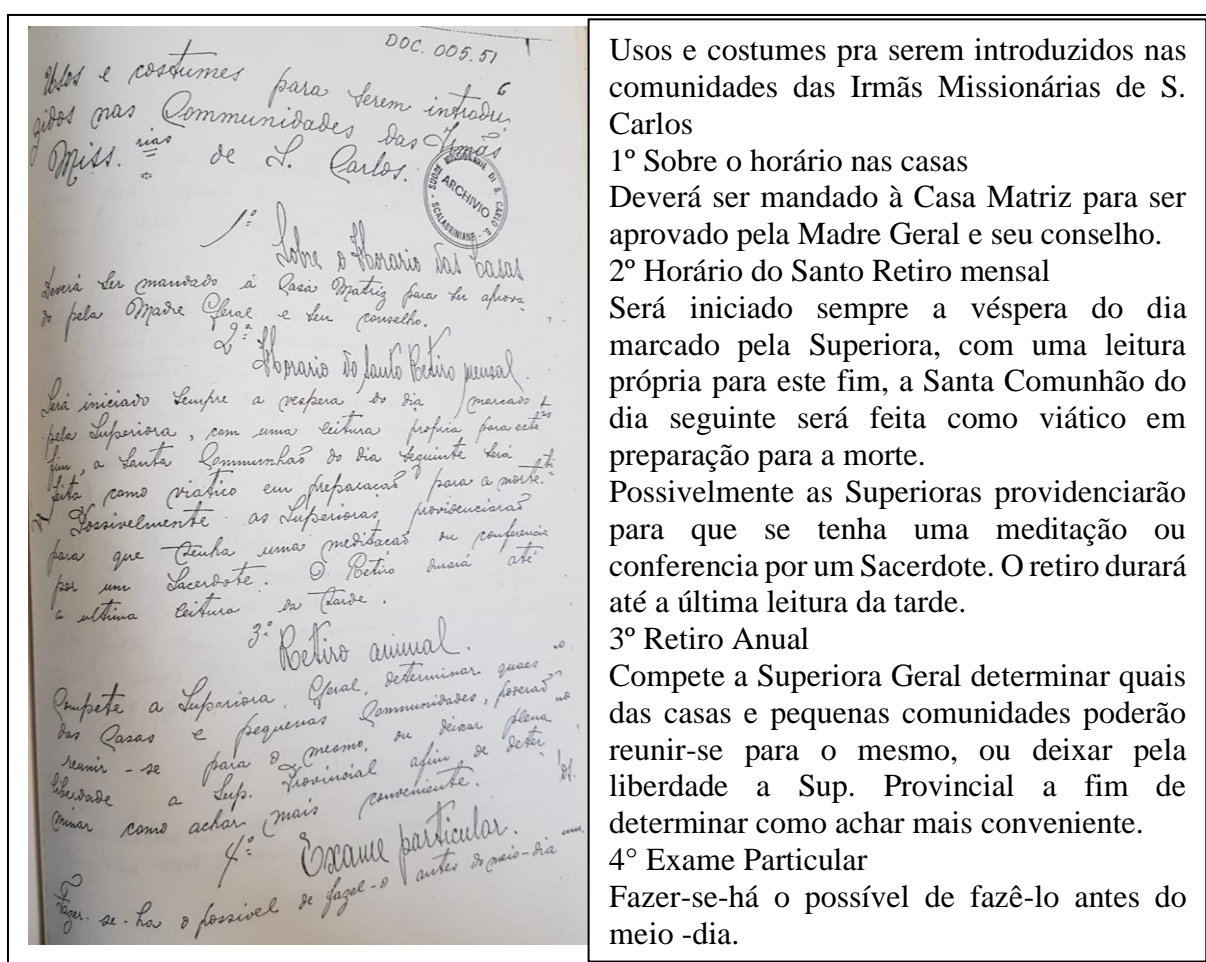 DOC. 005.51
6
Usos e costumes para serem introdu-
zidos nas Communidades das Irmãs
Miss.rias de S. Carlos.
SUORE MISSIONARIE DI S. CARLO B.
ARCHIVIO
SCALABRINIANE
1º
Sobre o Horario das Casas
Deverá ser mandado á Casa Matriz para ser aprova-
do pela Madre Geral e seu conselho.
2º
Horario do Santo Retiro mensal.
Será iniciado sempre a vespera do dia marcado
pela Superiora, com uma leitura propria para este
fim, a Santa Communhão do dia seguinte será
feita como viatico em preparação para a morte.
Possivelmente as Superioras providenciarão
para que tenha uma meditação ou conferencia
por um Sacerdote. O Retiro durará até
a ultima leitura da tarde.
3º
Retiro annual.
Compete a Superiora Geral, determinar quaes
das Casas e pequenas Communidades, poderão
reunir-se para o mesmo, ou deixar plena
liberdade a Sup. Provincial afim de deter
minar como achar mais conveniente.
4º
Exame particular.
Fazer-se-ha o possivel de fazel-o antes do meio-dia
Usos e costumes pra serem introduzidos nas
comunidades das Irmãs Missionárias de S.
Carlos
1º Sobre o horário nas casas
Deverá ser mandado à Casa Matriz para ser
aprovado pela Madre Geral e seu conselho.
2º Horário do Santo Retiro mensal
Será iniciado sempre a véspera do dia
marcado pela Superiora, com uma leitura
própria para este fim, a Santa Comunhão do
dia seguinte será feita como viático em
preparação para a morte.
Possivelmente as Superioras providenciarão
para que se tenha uma meditação ou
conferencia por um Sacerdote. O retiro durará
até a última leitura da tarde.
3º Retiro Anual
Compete a Superiora Geral determinar quais
das casas e pequenas comunidades poderão
reunir-se para o mesmo, ou deixar pela
liberdade a Sup. Provincial a fim de
determinar como achar mais conveniente.
4° Exame Particular
Fazer-se-há o possível de fazê-lo antes do
meio -dia.